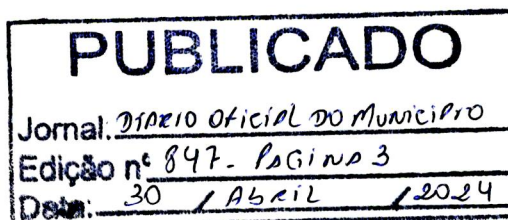 PUBLICADO
Jornal: DIARIO OFICIAL DO MUNICIPIO
Edição nº 847 - PAGINA 3
Data: 30 / ABRIL / 2024